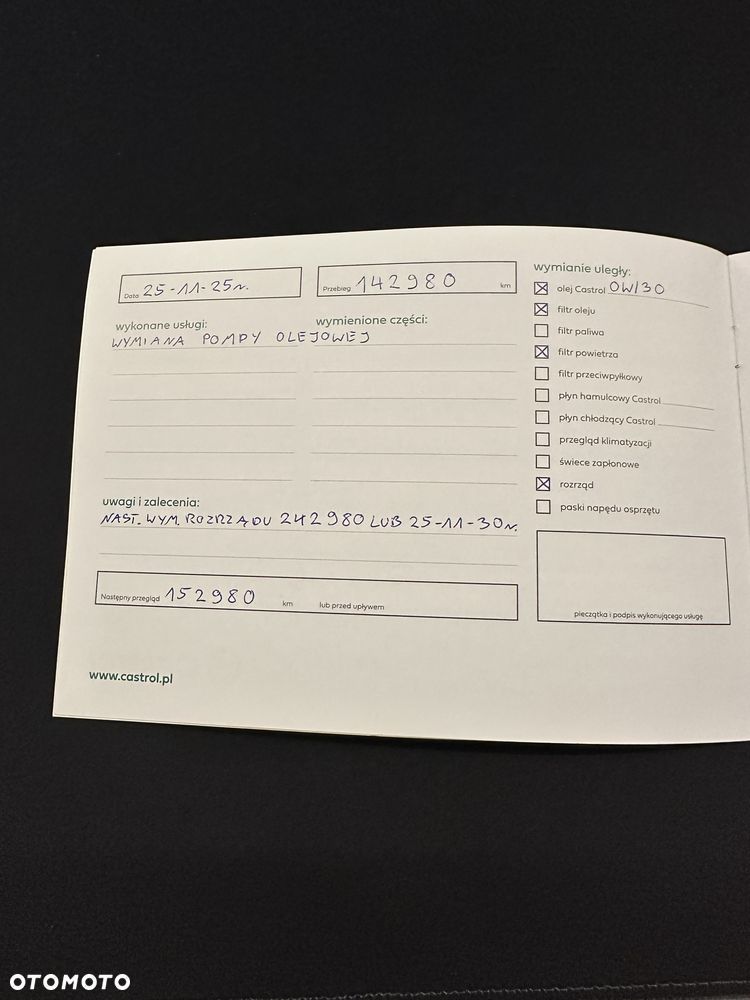 Data 25-11-25r.
Przebieg 142980 km
wykonane usługi: wymienione części:
WYMIANA POMPY OLEJOWEJ
uwagi i zalecenia:
NAST. WYM. ROZRZĄDU 242980 LUB 25-11-30r.
Następny przegląd 152980 km lub przed upływem
www.castrol.pl
wymianie uległy:
olej Castrol 0W/30
filtr oleju
filtr paliwa
filtr powietrza
filtr przeciwpyłkowy
płyn hamulcowy Castrol
płyn chłodzący Castrol
przegląd klimatyzacji
świece zapłonowe
rozrząd
paski napędu osprzętu
pieczątka i podpis wykonującego usługę
OTOMOTO